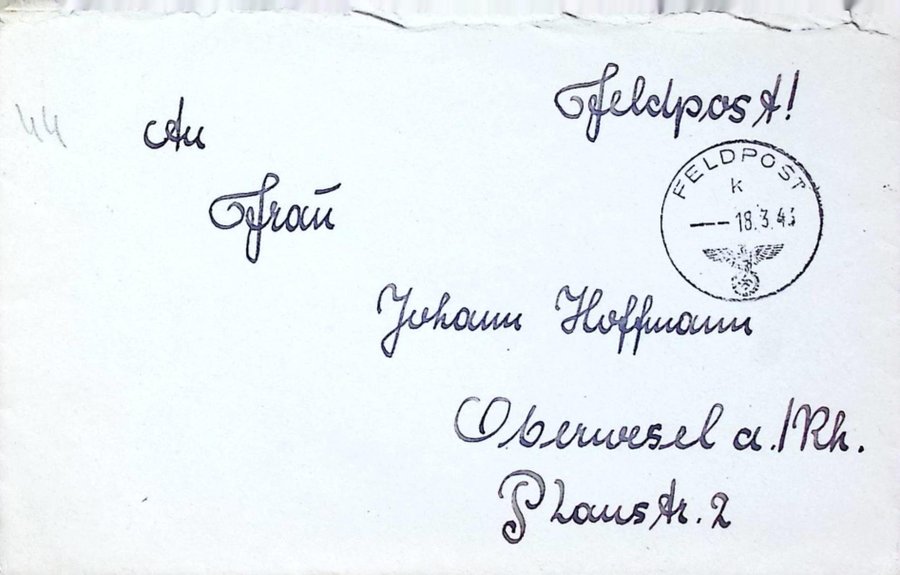 Feldpost!
44
An
FELDPOST
k
--- 18.3.43
Frau
Johann Hoffmann
Oberwesel a./Rh.
2